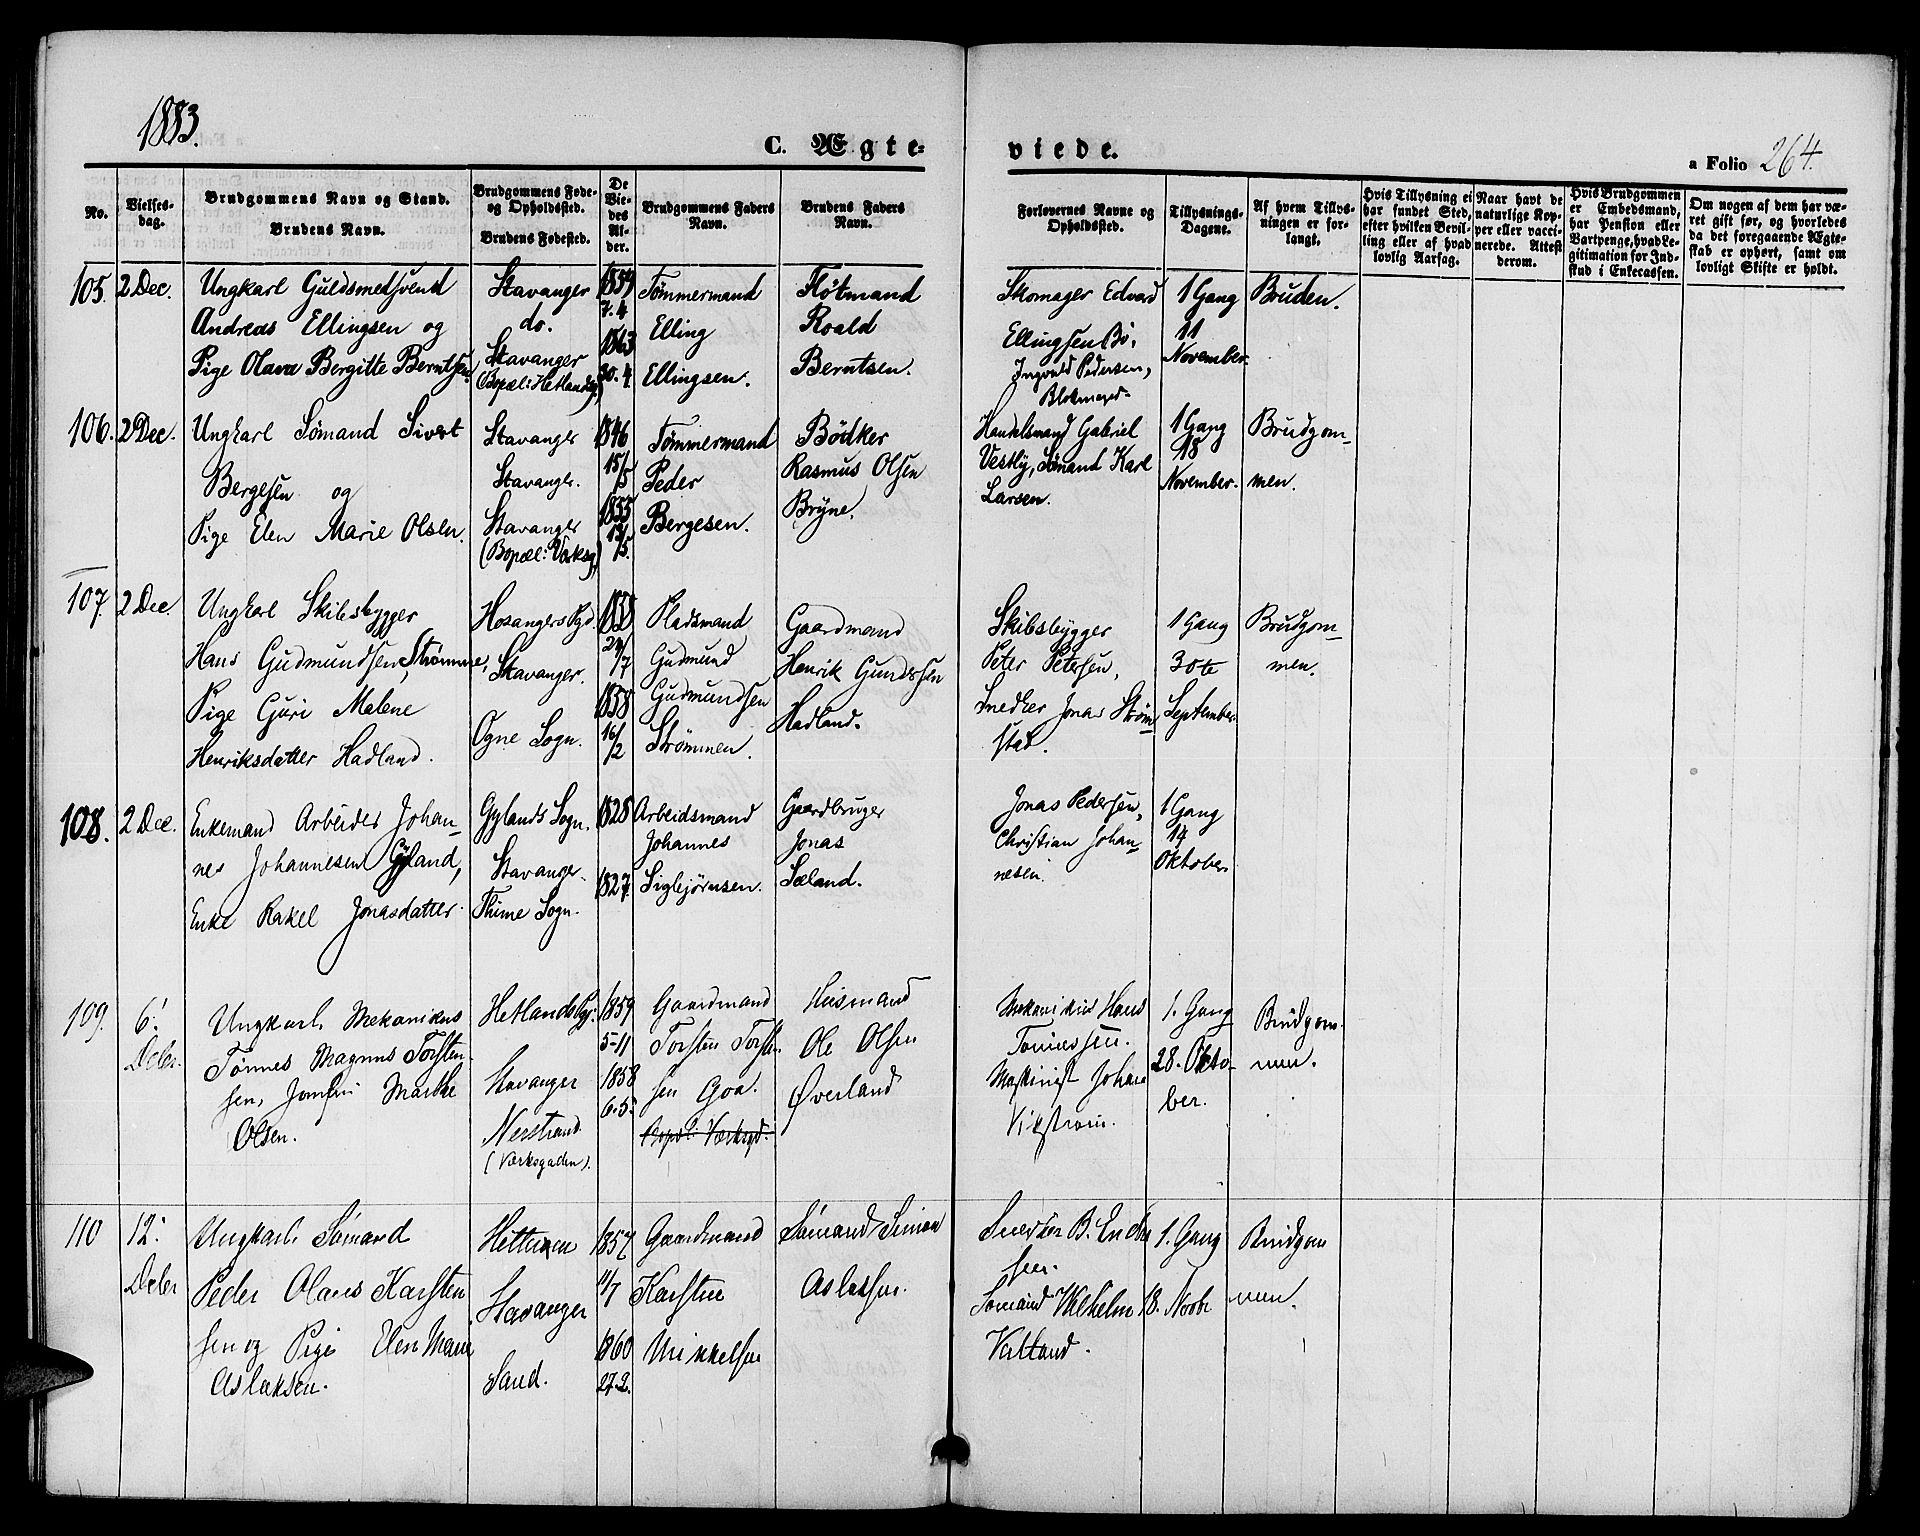 1883.
C. Ægte-
viede.
a Folio 264.
No.
Vielses-
dag.
Brudgommens Navn og Stand.
Brudens Navn.
Brudgommens Føde-
og Opholdssted.
Brudens Fødested.
De
Vie-
des
Al-
der.
Brudgommens Faders
Navn.
Brudens Faders
Navn.
Forlovernes Navne og
Opholdssted.
Tillysnings-
Dagene.
Af hvem Tillys-
ningen er for-
langt.
Hvis Tillysning ei
har fundet Sted,
efter hvilken Bevil-
ling eller af hvad
lovlig Aarsag.
Naar havt de
naturlige Kop-
per eller vacci-
nerede. Attest
derom.
Hvis Brudgommen
er Embedsmand,
har Pension eller
Vartpenge, hvad Le-
gitimation for Ind-
skud i Enkecassen.
Om nogen af dem har væ-
ret gift før, og hvorledes
da det foregaaende Ægte-
skab er ophørt, samt om
lovligt Skifte er holdt.
105.
2 Dec.
Ungkarl Guldsmedsvend
Andreas Ellingsen og
Pige Olava Bergitte Berntsen.
Stavanger
do.
Stavanger
(Bopæl: Hetlandsg.)
1859
7.4
1863
30.4
Tømmermand
Elling
Ellingsen.
Fløtmand
Roald
Berntsen.
Skomager Edvard
Ellingsen Bø,
Ingvald Pedersen,
Blokmager
1 Gang
11
November.
Bruden.
106.
2 Dec.
Ungkarl Sømand Sivert
Bergesen og
Pige Elen Marie Olsen.
Stavanger
Stavanger.
Stavanger
(Bopæl: Værksg.)
1846
15/5
1855
13/5.
Tømmermand
Peder
Bergesen.
Bødker
Rasmus Olsen
Bryne.
Handelsmand Gabriel
Vestly, Sømand Karl
Larsen.
1 Gang
18
November.
Brudgom-
men.
107.
2 Dec.
Ungkarl Skibsbygger
Hans Gudmundsen Strømme,
Pige Guri Malene
Henriksdatter Hadland.
Hosangers Pgd
Stavanger.
Ogne Sogn.
1858
24/7
1858
16/2
Pladsmand
Gudmund
Gudmundsen
Strømmen.
Gaardmand
Henrik Gundssen
Hadland.
Skibsbygger
Peter Petersen,
Snedker Jonas Strøm-
stad.
1 Gang
30te
September.
Brudgom-
men.
108.
2 Dec.
Enkemand Arbeider Johan-
nes Johannesen Gyland,
Enke Rakel Jonasdatter.
Gylands Sogn.
Stavanger.
Thime Sogn.
1828
1827.
Arbeidsmand
Johannes
Sigbjørnsen.
Gaardbruger
Jonas
Sæland.
Jonas Pedersen,
Christian Johan-
nesen.
1 Gang
14
Oktober.
109.
6'
Dcbr.
Ungkarl Mekanikus
Tønnes Magnus Torsten-
sen, Jomfru Marthe
Olsen.
Hetlands Pg.
Stavanger
Nerstrand
(Værksgaden).
1859
5-11
1858
6.5.
Gaardmand
Torsten Torsten-
sen Goa.
Bopæl: Værksgd.
Husmand
Ole Olsen
Øverland
Mekanikus Hans
Tønnessen.
Maskinist Johan
Vikstrøm.
1. Gang
28. Okto-
ber.
Brudgom-
men.
110
12.
Dcbr
Ungkarl Sømand
Peder Olaus Karsten
sen og Pige Elen Marie
Aslaksen.
Hetteren
Stavanger
Sand.
1857
11/7
1860
27.2.
Gaardmand
Karsten
Mikkelsen
Sømand Simon
Aslaksen.
Snedker B. Endre
sen.
Sømand Wilhelm
Valland.
1. Gang
18. Novbr
Brudgom
men.